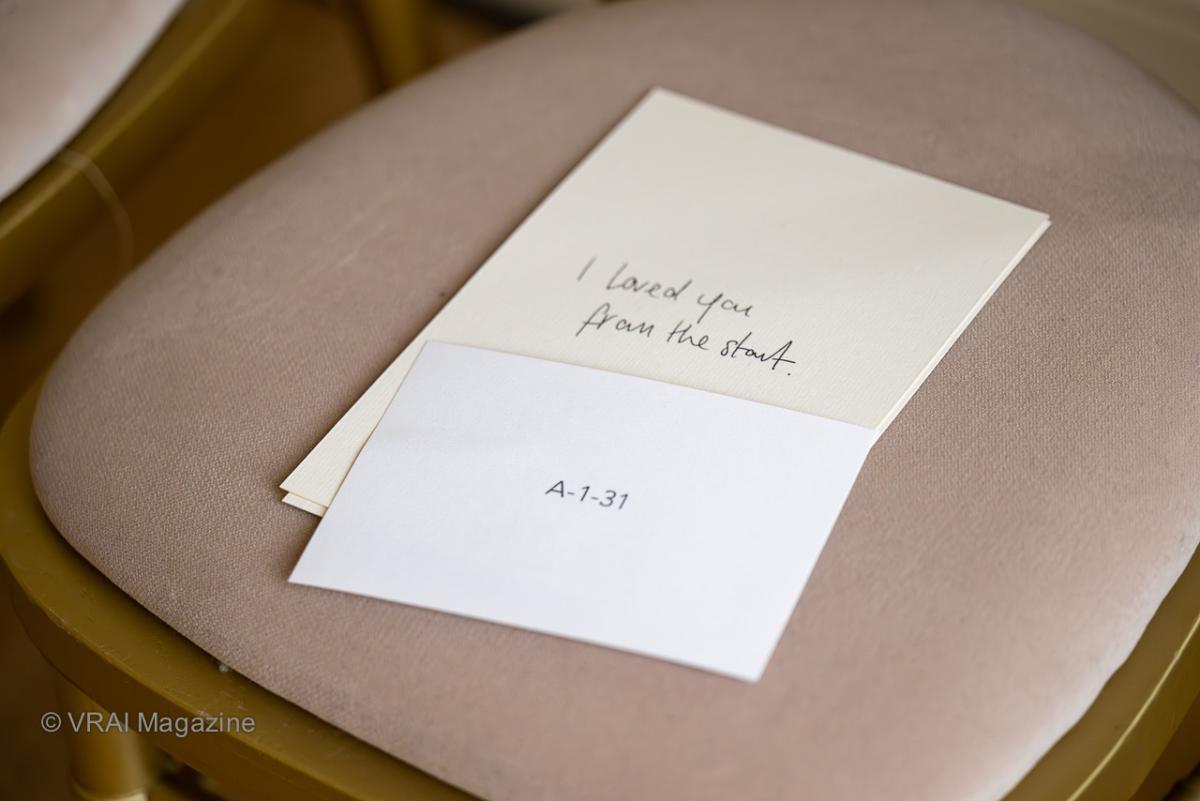 I loved you
from the start.
A-1-31
© VRAI Magazine